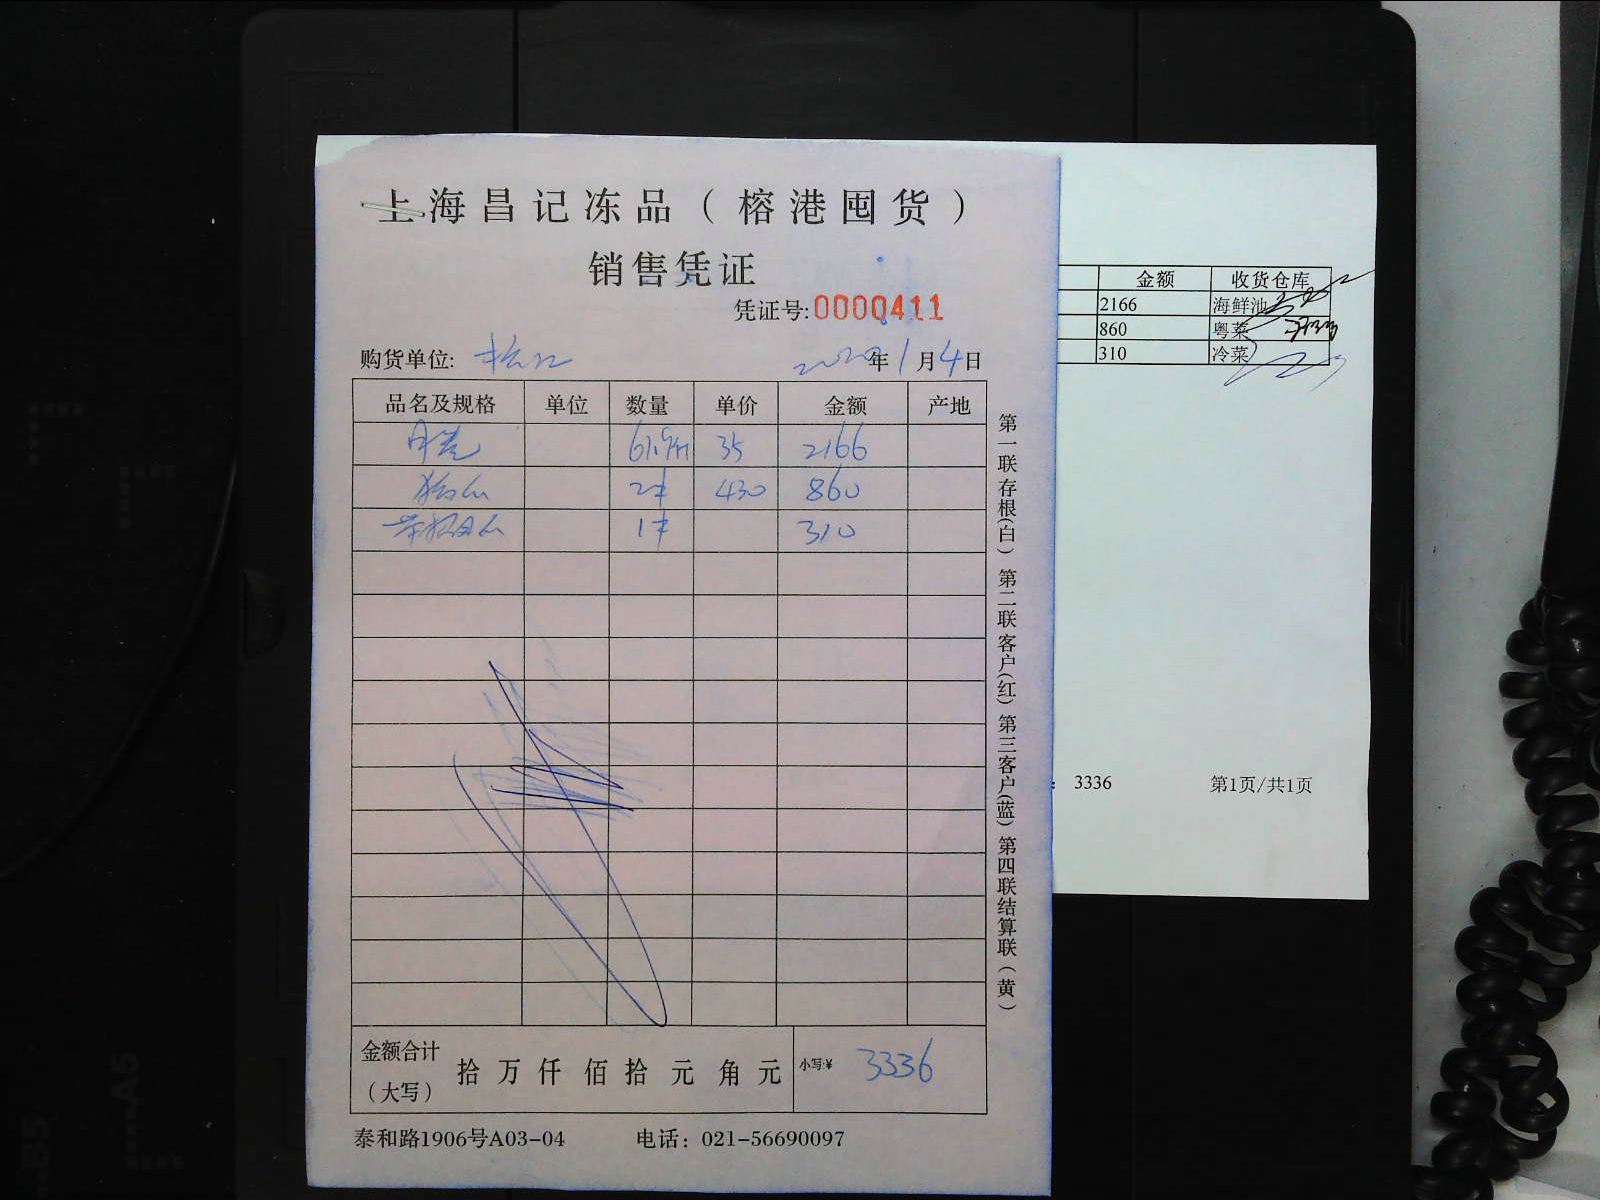 上海昌记冻品（榕港囤货）
销售凭证
凭证号:0000411
购货单位: 2020年1月4日
品名及规格 单位 数量 单价 金额 产地
35 2166
430 860
310
金额合计（大写） 拾 万 仟 佰 拾 元 角 元 小写:¥ 3336
泰和路1906号A03-04 电话：021-56690097
第一联存根(白) 第二联客户(红) 第三客户(蓝) 第四联结算联(黄)
金额 收货仓库
2166 海鲜池
860 粤菜
310 冷菜
：3336 第1页/共1页
B5
A5